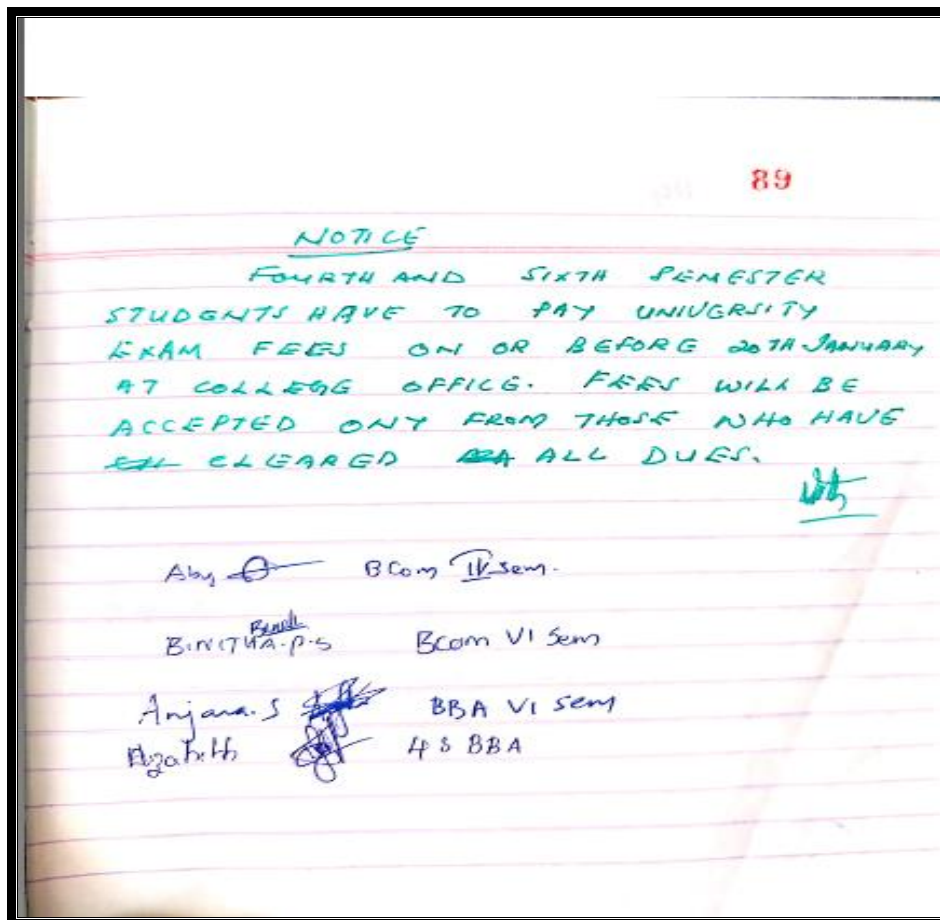 89
NOTICE
FOURTH AND SIXTH SEMESTER
STUDENTS HAVE TO PAY UNIVERSITY
EXAM FEES ON OR BEFORE 20TH JANUARY
AT COLLEGE OFFICE. FEES WILL BE
ACCEPTED ONY FROM THOSE WHO HAVE
CLEARED ALL DUES.
Aby BCom IV sem.
BINITHA.P.S Bcom VI Sem
Anjana.S BBA VI sem
Elizabeth 4 S BBA